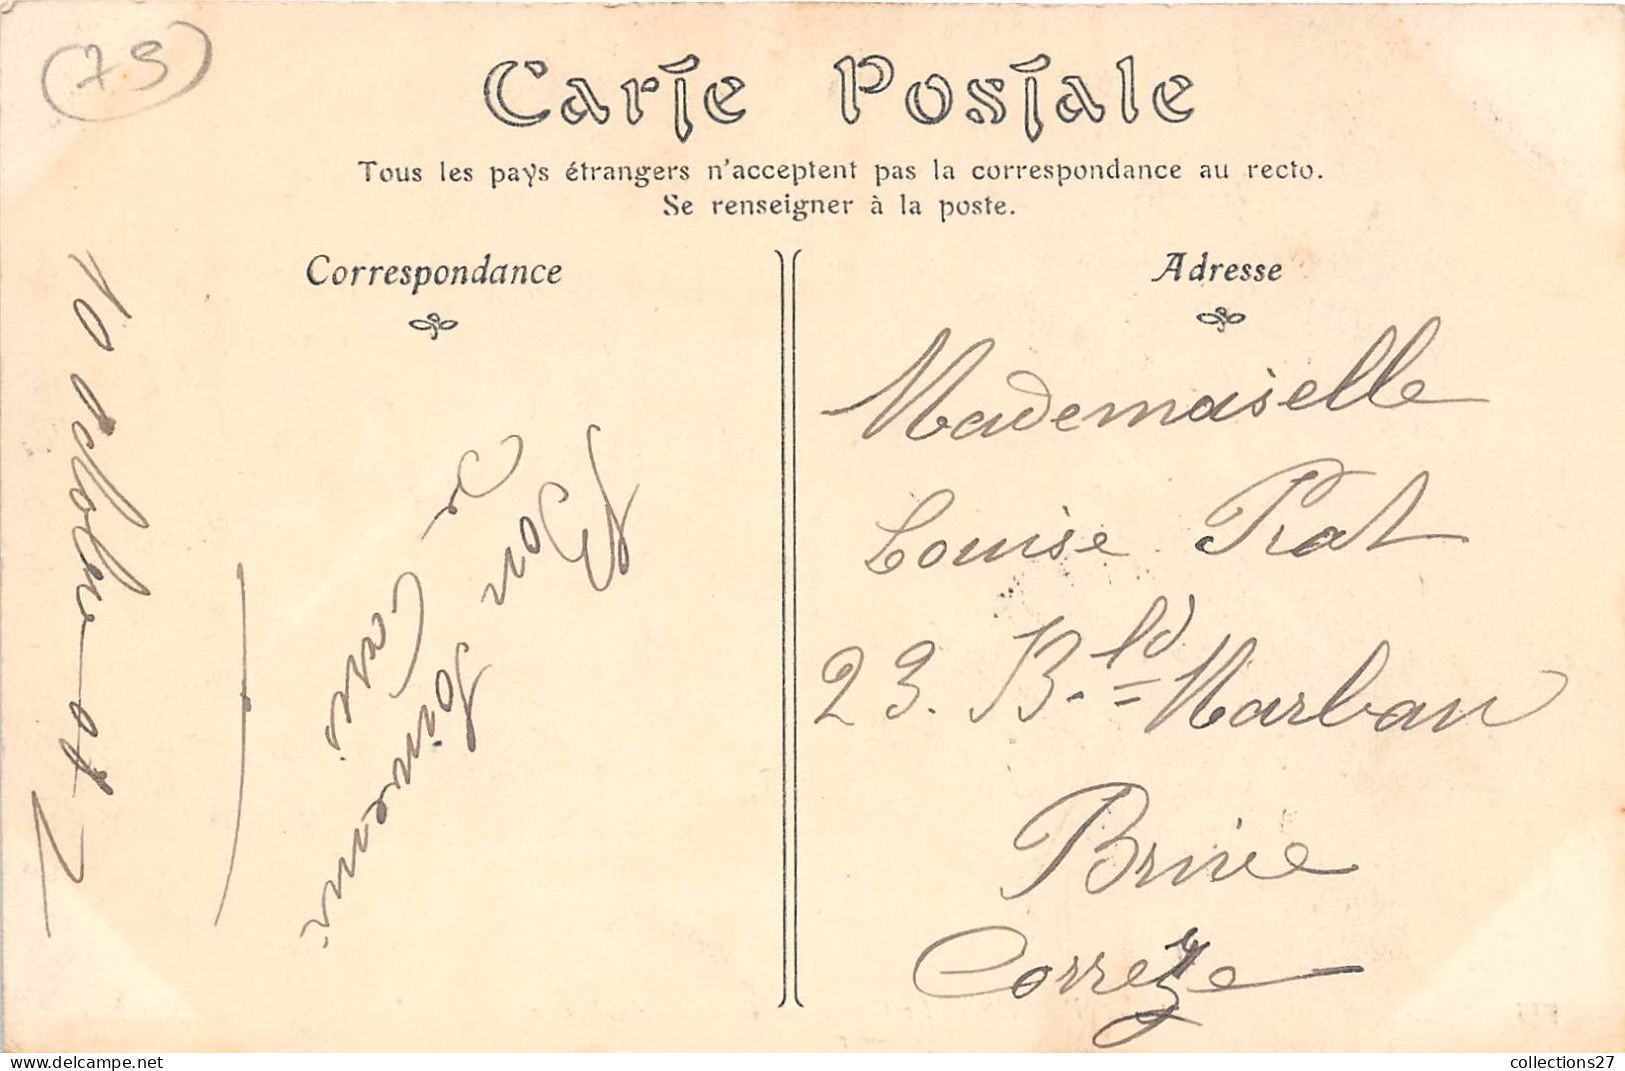 (75)
Carte Postale
Tous les pays étrangers n'acceptent pas la correspondance au recto.
Se renseigner à la poste.
Correspondance
Adresse
10 octobre 07
Bon
Souvenir
de
Mademoiselle
Louise Prat
23. B.ld Marbau
Brive
Corrèze
collections27